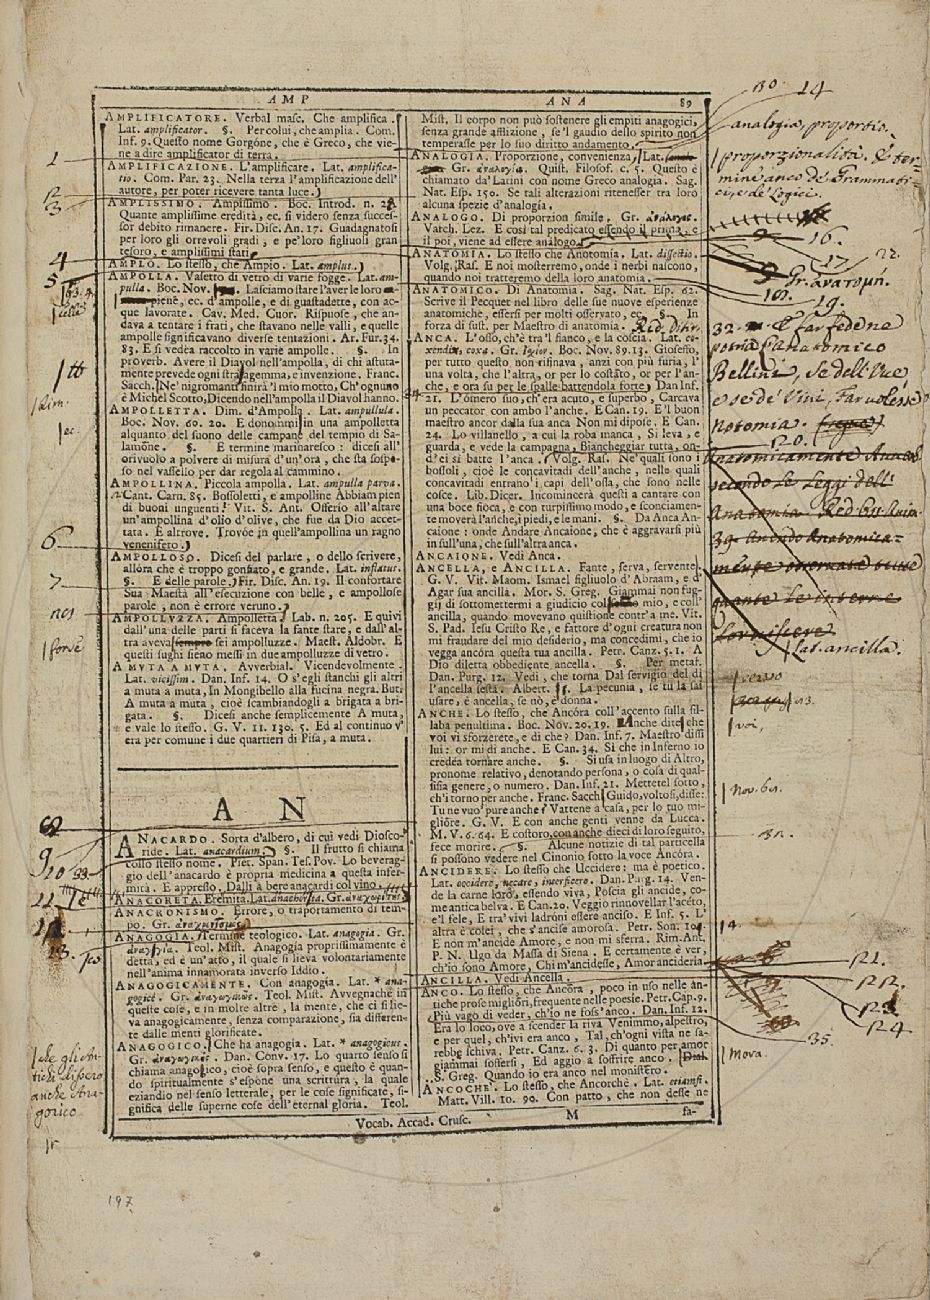 AMP
ANA
89
AMPLIFICATORE. Verbal masc. Che amplifica.
Lat. amplificator. §. Per colui, che amplia. Com.
Inf. 9. Questo nome Gorgóne, che è Greco, che vie-
ne a dire amplificator di terra.
AMPLIFICAZIONE. L'amplificare. Lat. amplifica-
tio. Com. Par. 23. Nella terza l'amplificazione dell'
autore, per poter ricevere tanta luce.
AMPLISSIMO. Ampissimo. Boc. Introd. n.
Quante amplissime eredità, ec. si videro senza succes-
sor debito rimanere. Fir. Disc. An. 17. Guadagnatosi
per loro gli orrevoli gradi, e pe'loro figliuoli gran
tesoro, e amplissimi stati
AMPLO. Lo stesso, che Ampio. Lat. amplus.
AMPOLLA. Vasetto di vetro di varie fogge. Lat. am-
pulla. Boc. Nov. Lasciamo stare l'aver le loro
piene, ec. d'ampolle, e di guastadette, con ac-
que lavorate. Cav. Med. Cuor. Rispuose, che an-
dava a tentare i frati, che stavano nelle valli, e quelle
ampolle significavano diverse tentazioni. Ar. Fur. 34.
83. E si vedea raccolto in varie ampolle. §. In
proverb. Avere il Diavol nell'ampolla, di chi astuta-
mente prevede ogni stratagemma, e invenzione. Franc.
Sacch. Ne' nigromanti finirà 'l mio motto, Ch'ognuno
è Michel Scotto, Dicendo nell'ampolla il Diavol hanno.
AMPOLLETTA. Dim. d'Ampolla. Lat. ampullula.
Boc. Nov. 60. 20. E donommi in una ampolletta
alquanto del suono delle campane del tempio di Sa-
lamone. §. E termine marinaresco: dicesi all'
orivuolo a polvere di misura d'un'ora, che sta sospe-
so nel vassello per dar regola al cammino.
AMPOLLINA. Piccola ampolla. Lat. ampulla parva.
Cant. Carn. 85. Bossoletti, e ampolline Abbiam pien
di buoni unguenti. Vit. S. Ant. Offerio all'altare
un'ampollina d'olio d'olive, che fue da Dio accet-
tata. E altrove. Trovóe in quell'ampollina un ragno
venenifero.
AMPOLLOSO. Dicesi del parlare, o dello scrivere,
allóra che è troppo gonfiato, e grande. Lat. inflatus.
§. E delle parole, Fir. Disc. An. 19. Il confortare
Sua Maestà all'esecuzione con belle, e ampollose
parole, non è errore veruno.
AMPOLLUZZA. Ampolletta. Lab. n. 205. E quivi
dall'una delle parti si faceva la fante stare, e dall'al-
tra aveva sempre sei ampolluzze. Maest. Aldobr. E
questi sughi sieno messi in due ampolluzze di vetro.
A MUTA A MUTA. Avverbial. Vicendevolmente.
Lat. vicissim. Dan. Inf. 14. O s'egli stanchi gli altri
a muta a muta, In Mongibello alla fucina negra. But.
A muta a muta, cioè scambiandogli a brigata a bri-
gata. §. Dicesi anche semplicemente A muta,
e vale lo stesso. G. V. 11. 130. 5. Ed al continuo v'
era per comune i due quartieri di Pisa, a muta.
A N
ANACARDO. Sorta d'albero, di cui vedi Diosco-
ride. Lat. anacardium. §. Il frutto si chiama
collo stesso nome. Piet. Span. Tes. Pov. Lo beverag-
gio dell'anacardo è propria medicina a questa infer-
mità. E appresso. Dalli a bere anacardi col vino.
ANACORETA. Eremita. Lat. anachoreta. Gr.
ANACRONISMO. Errore, o traportamento di tem-
po. Gr.
ANAGOGIA. Termine teologico. Lat. anagogia. Gr.
Teol. Mist. Anagogia proprissimamente è
detta, ed è un'atto, il quale si lieva volontariamente
nell'anima innamorata inverso Iddio.
ANAGOGICAMENTE. Con anagogia. Lat. * ana-
gogicè. Gr. ἀναγωγικῶς. Teol. Mist. Avvegnachè in
queste cose, e in molte altre, la mente, che ci si lie-
va anagogicamente, senza comparazione, sia differen-
te dalle menti glorificate.
ANAGOGICO. Che ha anagogia. Lat. * anagogicus.
Gr. ἀναγωγικός. Dan. Conv. 17. Lo quarto senso si
chiama anagogico, cioè sopra senso, e questo è quan-
do spiritualmente s'espone una scrittura, la quale
eziandio nel senso letterale, per le cose significate, si-
gnifica delle superne cose dell'eternal gloria. Teol.
Mist. Il corpo non può sostenere gli empiti anagogici,
senza grande afflizione, se 'l gaudio dello spirito non
temperasse per lo suo diritto andamento.
ANALOGIA. Proporzione, convenienza. Lat.
Gr. ἀναλογία. Quist. Filosof. c. 5. Questo è
chiamato da'Latini con nome Greco analogia. Sag.
Nat. Esp. 150. Se tali alterazioni ritenesser tra loro
alcuna spezie d'analogia.
ANALOGO. Di proporzion simile. Gr. ἀνάλογος.
Varch. Lez. E così tal predicato essendo il prima, e
il poi, viene ad essere análogo.
ANATOMIA. Lo stesso che Anotomia. Lat. dissectio.
Volg. Ras. E noi mosterremo, onde i nerbi nascono,
quando noi tratteremo della loro anatomia.
ANATOMICO. Di Anatomia. Sag. Nat. Esp. 62.
Scrive il Pecquet nel libro delle sue nuove esperienze
anatomiche, essersi per molti osservato, ec. §. In
forza di sust. per Maestro di anatomia.
ANCA. L'osso, ch'è tra 'l fianco, e la coscia. Lat. co-
xendix, coxa. Gr. ἰσχίον. Boc. Nov. 89. 13. Giosefso,
per tutto questo non rifinava, anzi con più furia, l'
una volta, che l'altra, or per lo costato, or per l'an-
che, e ora su per le spalle battendola forte. Dan Inf.
21. L'ómero suo, ch'era acuto, e superbo, Carcava
un peccator con ambo l'anche. E Can. 19. E 'l buon
maestro ancor dalla sua anca Non mi dipose. E Can.
24. Lo villanello, a cui la roba manca, Si leva, e
guarda, e vede la campagna, Biancheggiar tutta, on-
d'ei si batte l'anca. Volg. Ras. Ne'quali sono i
bossoli, cioè le concavitadi dell'anche, nelle quali
concavitadi entrano i capi dell'ossa, che sono nelle
cosce. Lib. Dicer. Incomincerà questi a cantare con
una boce fioca, e con turpissimo modo, e sconciamen-
te moverà l'anche, i piedi, e le mani. §. Da Anca An-
caione: onde Andare Ancaione, che è aggravarsi più
in sull'una, che sull'altra anca.
ANCAIONE. Vedi Anca.
ANCELLA, e ANCILLA. Fante, serva, servente.
G. V. Vit. Maom. Ismael figliuolo d'Abraam, e d'
Agar sua ancilla. Mor. S. Greg. Giammai non fug-
gij di sottomettermi a giudicio col mio, e coll'
ancilla, quando movevano quistione contr'a me. Vit.
S. Pad. Iesu Cristo Re, e fattore d'ogni creatura non
mi fraudare del mio desiderio, ma concedimi, che io
vegga ancóra questa tua ancilla. Petr. Canz. 5. 1. A
Dio diletta obbediente ancella. §. Per metaf.
Dan. Purg. 12. Vedi, che torna Dal servigio del dì
l'ancella sesta. Albert. La pecunia, se tu la sai
usare, è ancella, se nò, è donna.
ANCHE. Lo stesso, che Ancóra coll'accento sulla sil-
laba penultima. Boc. Nov. 20. 19. Anche dite che
voi vi sforzerete, e di che? Dan. Inf. 7. Maestro dissi
lui: or mi dì anche. E Can. 34. Sì che in Inferno io
credéa tornare anche. §. Si usa in luogo di Altro,
pronome relativo, denotando persona, o cosa di qual-
sisia genere, o numero. Dan. Inf. 21. Mettetel sotto,
ch'i torno per anche. Franc. Sacch. Guido, voltosi, disse:
Tu ne vuo' pure anche? Vattene a casa, per lo tuo mi-
glióre. G. V. E con anche genti venne da Lucca.
M. V. 6. 64. E costoro, con anche dieci di loro seguito,
fece morire. §. Alcune notizie di tal particella
si possono vedere nel Cinonio sotto la voce Ancóra.
ANCIDERE. Lo stesso che Uccidere: ma è poetico.
Lat. occidere, necare, interficere. Dan. Purg. 14. Ven-
de la carne loro, essendo viva, Poscia gli ancide, co-
me antica belva. E Can. 20. Veggio rinnovellar l'aceto,
e'l fele, E tra' vivi ladróni essere anciso. E Inf. 5. L'
altra è colei, che s'ancise amorosa. Petr. Son. 101.
E non m'ancide Amore, e non mi sferra. Rim. Ant.
P. N. Ugo da Massa di Siena. E certamente è ver,
ch'io sono Amore, Chi m'ancidesse, Amor ancideria
ANCILLA. Vedi Ancella.
ANCO. Lo stesso, che Ancóra, poco in uso nelle an-
tiche prose migliori, frequente nelle poesie. Petr. Cap. 9.
Più vago di veder, ch'io ne foss'anco. Dan. Inf. 12.
Era lo loco, ove a scender la riva Venimmo, alpestro,
e per quel, ch'ivi era anco, Tal, ch'ogni vista ne sa-
rebbe schiva. Petr. Canz. 6. 3. Di quanto per amor
giammai soffersi, Ed aggio a soffrire anco.
S. Greg. Quando io era anco nel monistéro.
ANCOCHÈ. Lo stesso, che Ancorchè. Lat. etiamsi.
Matt. Vill. 10. 90. Con patto, che non desse ne
Vocab. Accad. Crusc.
M
fa-
1
2
3
4
5
dim.
ec.
6
7
nes
forse
9
che gli An-
tichi dissero
anche Ana-
gorico
14
analogia, proportio.
proporzionalità. È ter-
mine anco de' Grammati-
ci, e de' Logici.
16.
17
22.
Gr. ἀνατομή.
19.
e far fede ne
potria l'anatomico
Bellini, Se dell'Uve,
e se de' Vini, Far volesse
notomia.
20.
Anatomicamente
secondo le Leggi dell'
Anatomia. Red. Oss. Anim.
39.
Lat. ancilla.
verso
voi,
Nov. 61.
14
21.
22.
23
24
35.
Mova.
197